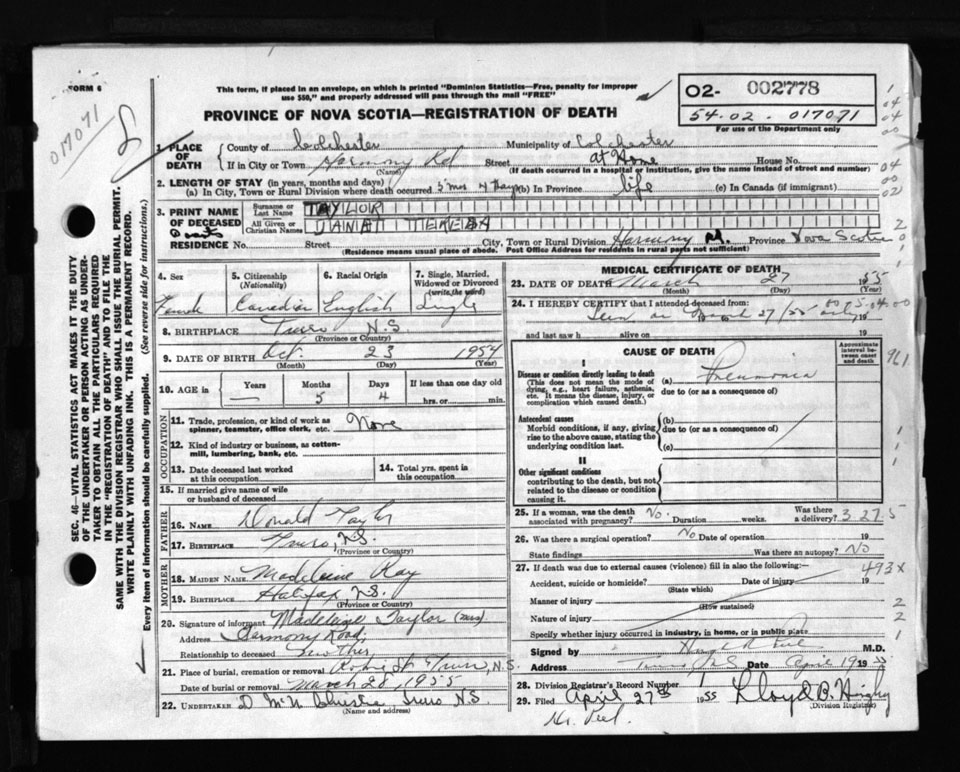 FORM 6
This form, if placed in an envelope, on which is printed "Dominion Statistics—Free, penalty for improper
use $50," and properly addressed will pass through the mail "FREE"
PROVINCE OF NOVA SCOTIA—REGISTRATION OF DEATH
02- 002778
54-02-017071
For use of the Department only
017071
1. PLACE OF DEATH
County of Colchester Municipality of Colchester
If in City or Town Harmony Rd Street at Home House No.
(Name) (If death occurred in a hospital or institution, give its name instead of street and number)
2. LENGTH OF STAY (in years, months and days)
(a) In City, Town or Rural Division where death occurred 5 mos 4 days (b) In Province life (c) In Canada (if immigrant)
3. PRINT NAME OF DECEASED
Surname or Last Name TAYLOR
All Given or Christian Names JANAT TERESA
RESIDENCE No. Street City, Town or Rural Division Harmony Rd. Province Nova Scotia
(Residence means usual place of abode. Post Office Address for residents in rural parts not sufficient)
4. Sex Female
5. Citizenship (Nationality) Canadian
6. Racial Origin English
7. Single, Married, Widowed or Divorced (write the word) Single
8. BIRTHPLACE Truro N.S.
(Province or Country)
9. DATE OF BIRTH Oct. 23 1954
(Month) (Day) (Year)
10. AGE in Years Months Days If less than one day old
— 5 4 hrs. or min.
OCCUPATION
11. Trade, profession, or kind of work as spinner, teamster, office clerk, etc. None
12. Kind of industry or business, as cotton-mill, lumbering, bank, etc.
13. Date deceased last worked at this occupation
14. Total yrs. spent in this occupation
15. If married give name of wife or husband of deceased
FATHER
16. NAME Donald Taylor
17. BIRTHPLACE Truro, N.S.
(Province or Country)
MOTHER
18. MAIDEN NAME Madeleine Ray
19. BIRTHPLACE Halifax N.S.
(Province or Country)
20. Signature of informant Madeleine Taylor (Mrs)
Address Harmony Road,
Relationship to deceased Mother
21. Place of burial, cremation or removal Truro, N.S.
Date of burial or removal March 28, 1955
22. UNDERTAKER Truro N.S.
(Name and address)
MEDICAL CERTIFICATE OF DEATH
23. DATE OF DEATH March 27 1955
(Month) (Day)
24. I HEREBY CERTIFY that I attended deceased from:
Seen on March 27/55 only 19
and last saw h alive on 19
CAUSE OF DEATH
Approximate interval between onset and death
I
Disease or condition directly leading to death
(This does not mean the mode of dying, e.g., heart failure, asthenia, etc. It means the disease, injury, or complication which caused death.)
(a) Pneumonia
due to (or as a consequence of)
Antecedent causes
Morbid conditions, if any, giving rise to the above cause, stating the underlying condition last.
(b)
due to (or as a consequence of)
(c)
II
Other significant conditions
contributing to the death, but not related to the disease or condition causing it.
25. If a woman, was the death associated with pregnancy? No. Duration weeks. Was there a delivery? 3 27 5
26. Was there a surgical operation? No Date of operation 19
State findings Was there an autopsy? No
27. If death was due to external causes (violence) fill in also the following:- 493X
Accident, suicide or homicide? Date of injury 19
(State which)
Manner of injury
(How sustained)
Nature of injury
Specify whether injury occurred in industry, in home, or in public place
Signed by M.D.
Address Truro N.S. Date April 19 1955
28. Division Registrar's Record Number
29. Filed April 27th 1955 Lloyd B.
(Division Registrar)
SEC. 46—VITAL STATISTICS ACT MAKES IT THE DUTY
OF THE UNDERTAKER OR PERSON ACTING AS UNDER-
TAKER TO OBTAIN ALL THE PARTICULARS REQUIRED
IN THE "REGISTRATION OF DEATH" AND TO FILE THE
SAME WITH THE DIVISION REGISTRAR WHO SHALL ISSUE THE BURIAL PERMIT.
WRITE PLAINLY WITH UNFADING INK. THIS IS A PERMANENT RECORD.
Every item of information should be carefully supplied. (See reverse side for instructions.)